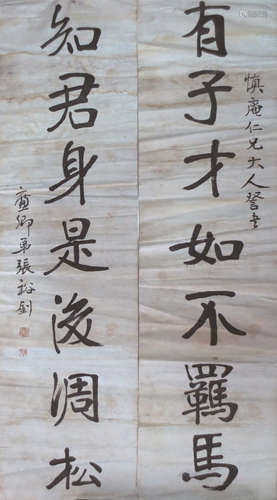 有子才如不羈馬
慎庵仁兄大人詧書
知君身是後凋松
廉卿弟張裕釗